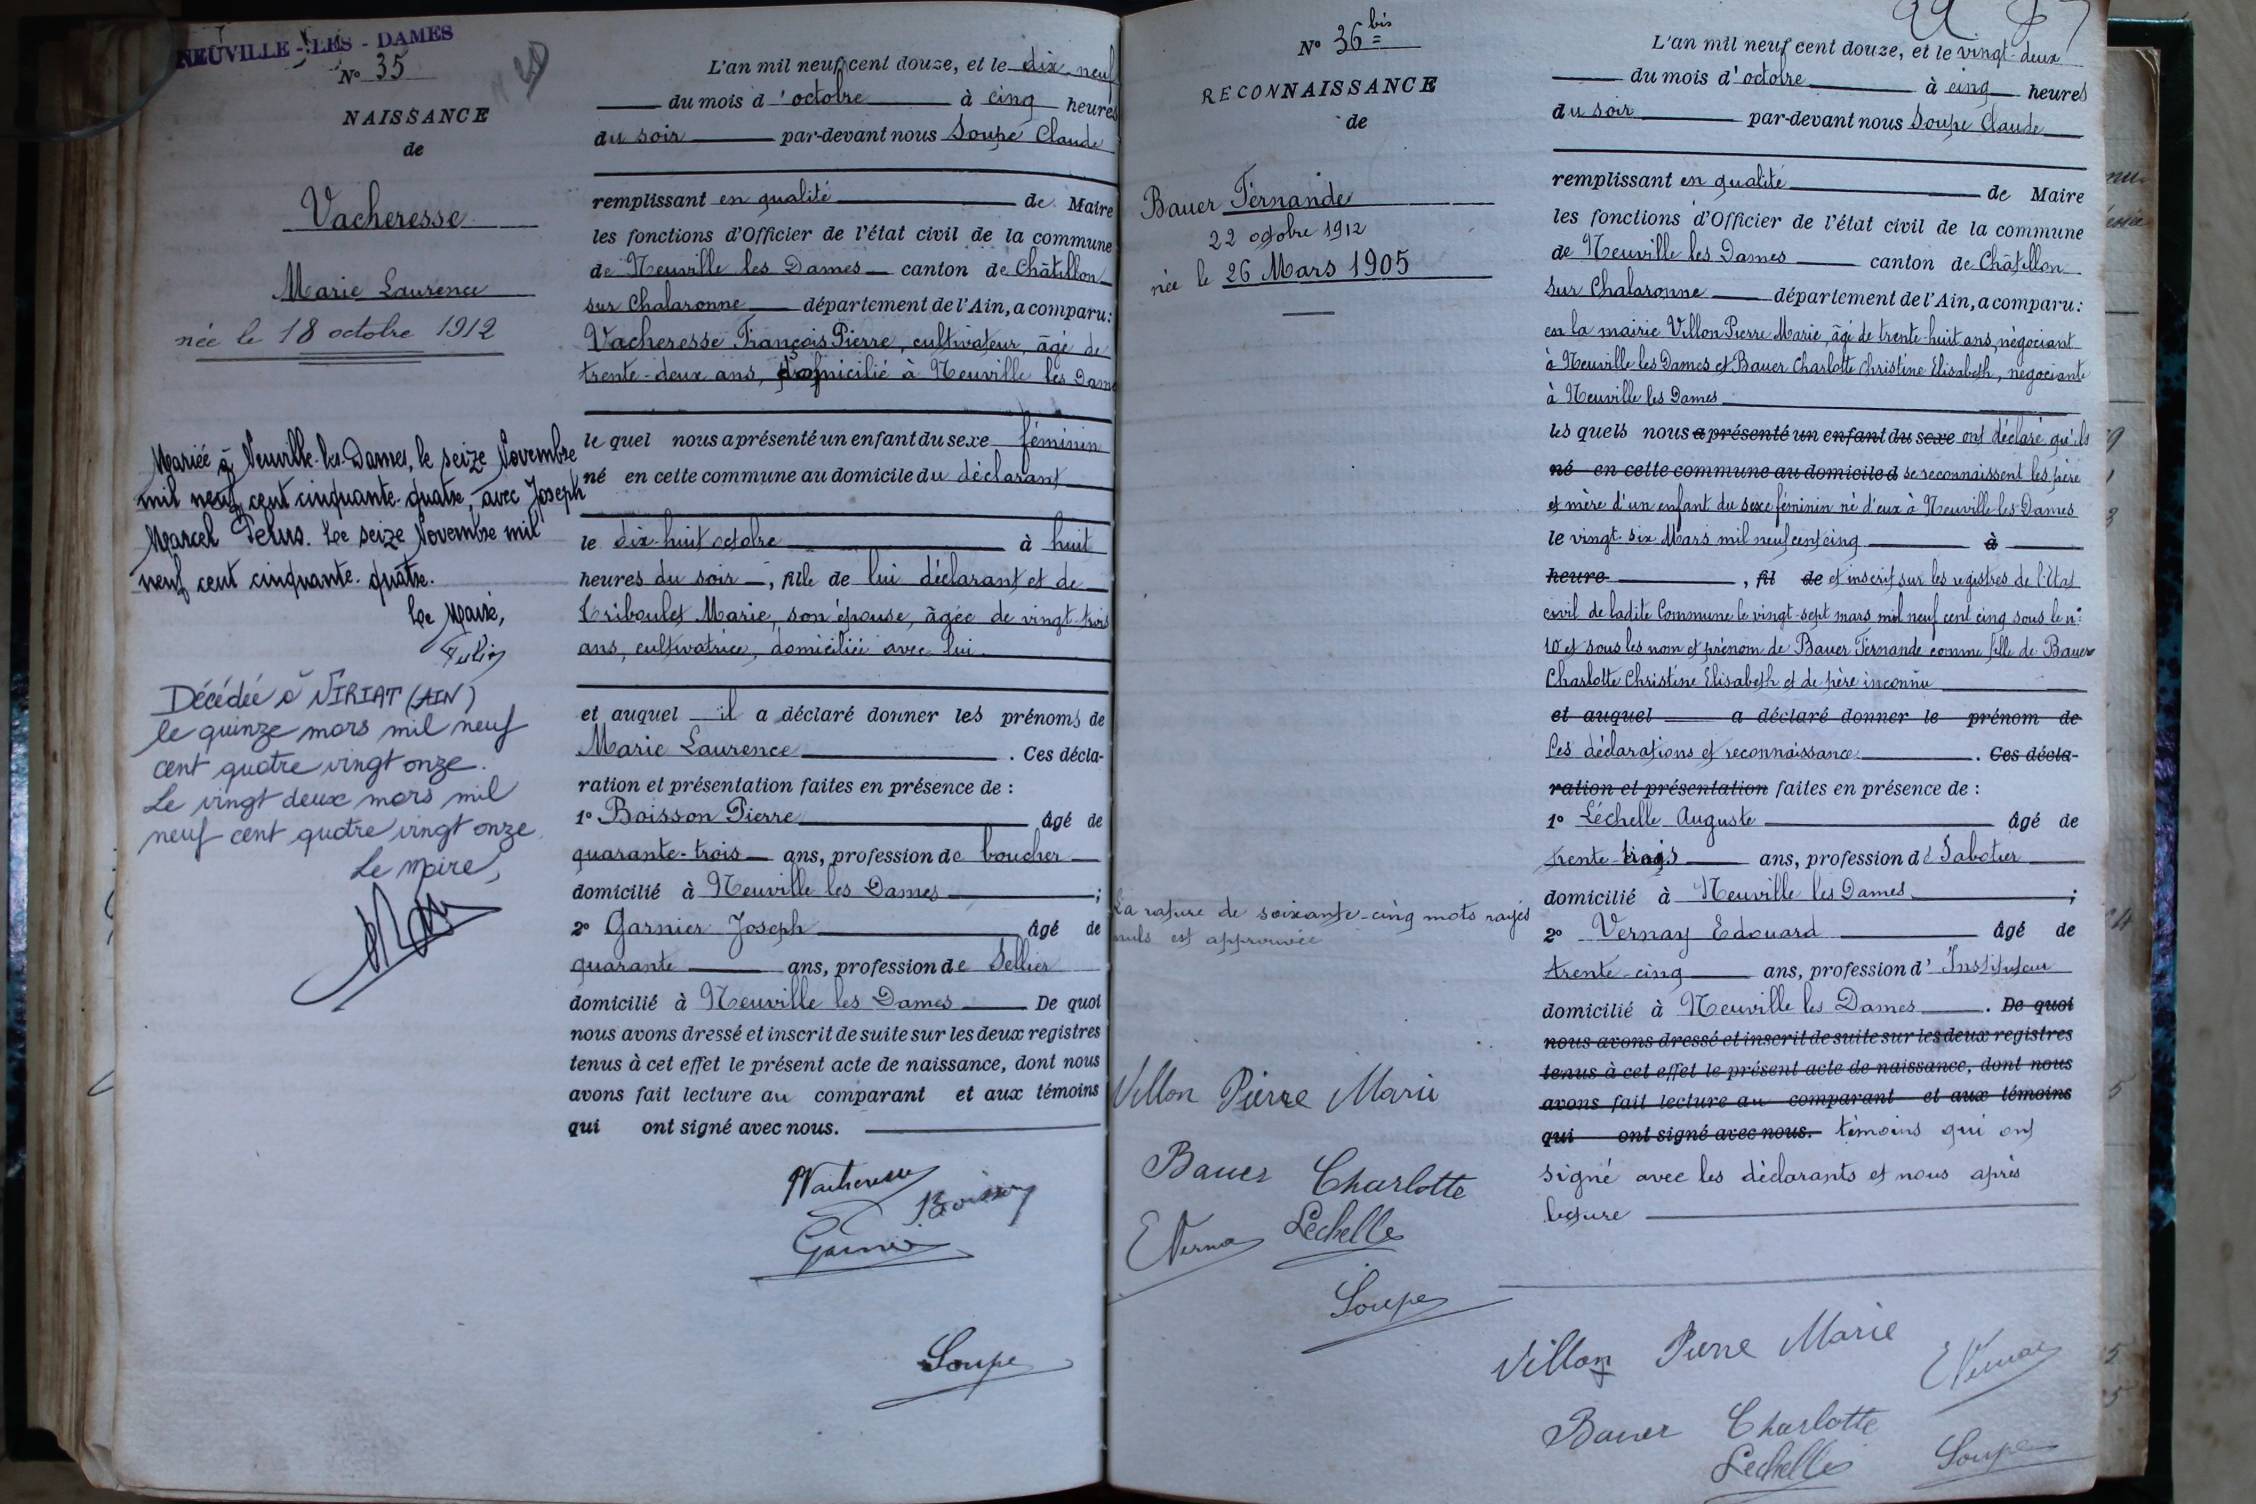 NEUVILLE-LES-DAMES
N° 35
NAISSANCE
de
Vacheresse
Marie Laurence
née le 18 octobre 1912
Mariée à Neuville-les-Dames, le seize Novembre
mil neuf cent cinquante-quatre, avec Joseph
Marcel Pelus. Le seize Novembre mil
neuf cent cinquante-quatre.
Le Maire,
Décédée à VIRIAT (AIN)
le quinze mars mil neuf
cent quatre vingt onze.
Le vingt deux mars mil
neuf cent quatre vingt onze.
Le Maire,
L'an mil neuf cent douze, et le dix-neuf
du mois d'octobre à cinq heures
du soir par-devant nous Soupe Claude
remplissant en qualité de Maire
les fonctions d'Officier de l'état civil de la commune
de Neuville les Dames canton de Châtillon
sur Chalaronne département de l'Ain, a comparu:
Vacheresse François Pierre, cultivateur, âgé de
trente-deux ans, domicilié à Neuville les Dames
le quel nous a présenté un enfant du sexe féminin
né en cette commune au domicile du déclarant
le dix-huit octobre à huit
heures du soir, fille de lui déclarant et de
Triboulet Marie, son épouse, âgée de vingt-trois
ans, cultivatrice, domiciliée avec lui
et auquel il a déclaré donner les prénoms de
Marie Laurence. Ces décla-
ration et présentation faites en présence de :
1° Boisson Pierre âgé de
quarante-trois ans, profession de boucher
domicilié à Neuville les Dames ;
2° Garnier Joseph âgé de
quarante ans, profession de Sellier
domicilié à Neuville les Dames De quoi
nous avons dressé et inscrit de suite sur les deux registres
tenus à cet effet le présent acte de naissance, dont nous
avons fait lecture au comparant et aux témoins
qui ont signé avec nous.
Vacheresse
Boisson
Garnier
Soupe
N° 36 bis
RECONNAISSANCE
de
Bauer Fernande
22 octobre 1912
née le 26 Mars 1905
La rature de soixante-cinq mots rayés
nuls est approuvée
Villon Pierre Marie
Bauer Charlotte
E Vernay Lechelle
Soupe
L'an mil neuf cent douze, et le vingt-deux
du mois d'octobre à cinq heures
du soir par-devant nous Soupe Claude
remplissant en qualité de Maire
les fonctions d'Officier de l'état civil de la commune
de Neuville les Dames canton de Châtillon
sur Chalaronne département de l'Ain, a comparu:
en la mairie Villon Pierre Marie, âgé de trente-huit ans, négociant
à Neuville les Dames et Bauer Charlotte Christine Elisabeth, négociante
à Neuville les Dames
les quels nous a présenté un enfant du sexe ont déclaré qu'ils
né en cette commune au domicile d se reconnaissent les père
et mère d'un enfant du sexe féminin né d'eux à Neuville-les-Dames
le vingt-six Mars mil neuf cent cinq à
heure , fil de et inscrit sur les registres de l'Etat
civil de ladite Commune le vingt-sept mars mil neuf cent cinq sous le n°
10 et sous les nom et prénom de Bauer Fernande comme fille de Bauer
Charlotte Christine Elisabeth et de père inconnu
et auquel a déclaré donner le prénom de
Ces déclarations et reconnaissance. Ces décla-
ration et présentation faites en présence de :
1° Léchelle Auguste âgé de
trente-trois ans, profession de Sabotier
domicilié à Neuville les Dames ;
2° Vernay Edouard âgé de
trente-cinq ans, profession d'Instituteur
domicilié à Neuville les Dames. De quoi
nous avons dressé et inscrit de suite sur les deux registres
tenus à cet effet le présent acte de naissance, dont nous
avons fait lecture au comparant et aux témoins
qui ont signé avec nous. témoins qui ont
signé avec les déclarants et nous après
lecture
Villon Pierre Marie
E Vernay
Bauer Charlotte
Lechelle
Soupe